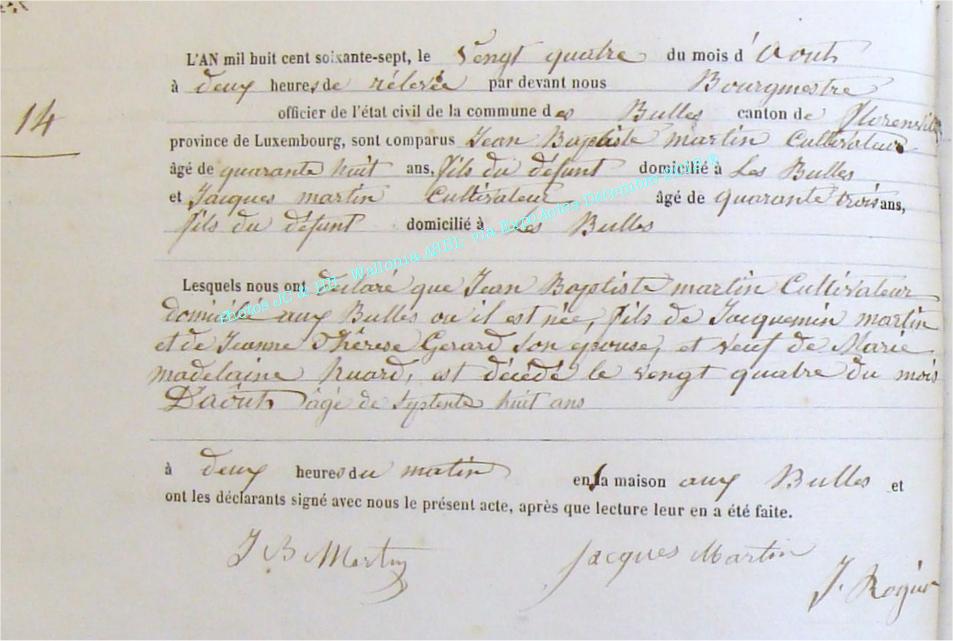 L'AN mil huit cent soixante-sept, le vengt quatre du mois d'Aout
à deux heures de rélevée par devant nous Bourgmestre
officier de l'état civil de la commune des Bulles canton de Florenville
14
province de Luxembourg, sont comparus Jean Baptiste martin Cultivateur
âgé de quarante huit ans, fils du défunt domicilié à Les Bulles
et Jacques martin Cultivateur âgé de quarante trois ans,
fils du défunt domicilié à Les Bulles
Lesquels nous ont déclaré que Jean Baptiste martin Cultivateur
domicilié aux Bulles ou il est née, fils de Jacquemin martin
et de Jeanne Thérese Gerard son epouse, et veuf de Marie
madelaine huard, est décédé le vengt quatre du mois
D'août âgé de septente huit ans
à deux heures du matin en la maison aux Bulles et
ont les déclarants signé avec nous le présent acte, après que lecture leur en a été faite.
J B Martin Jacques Martin
Photos JC & HH Wallonia ASBL via ExpoActes Décembre